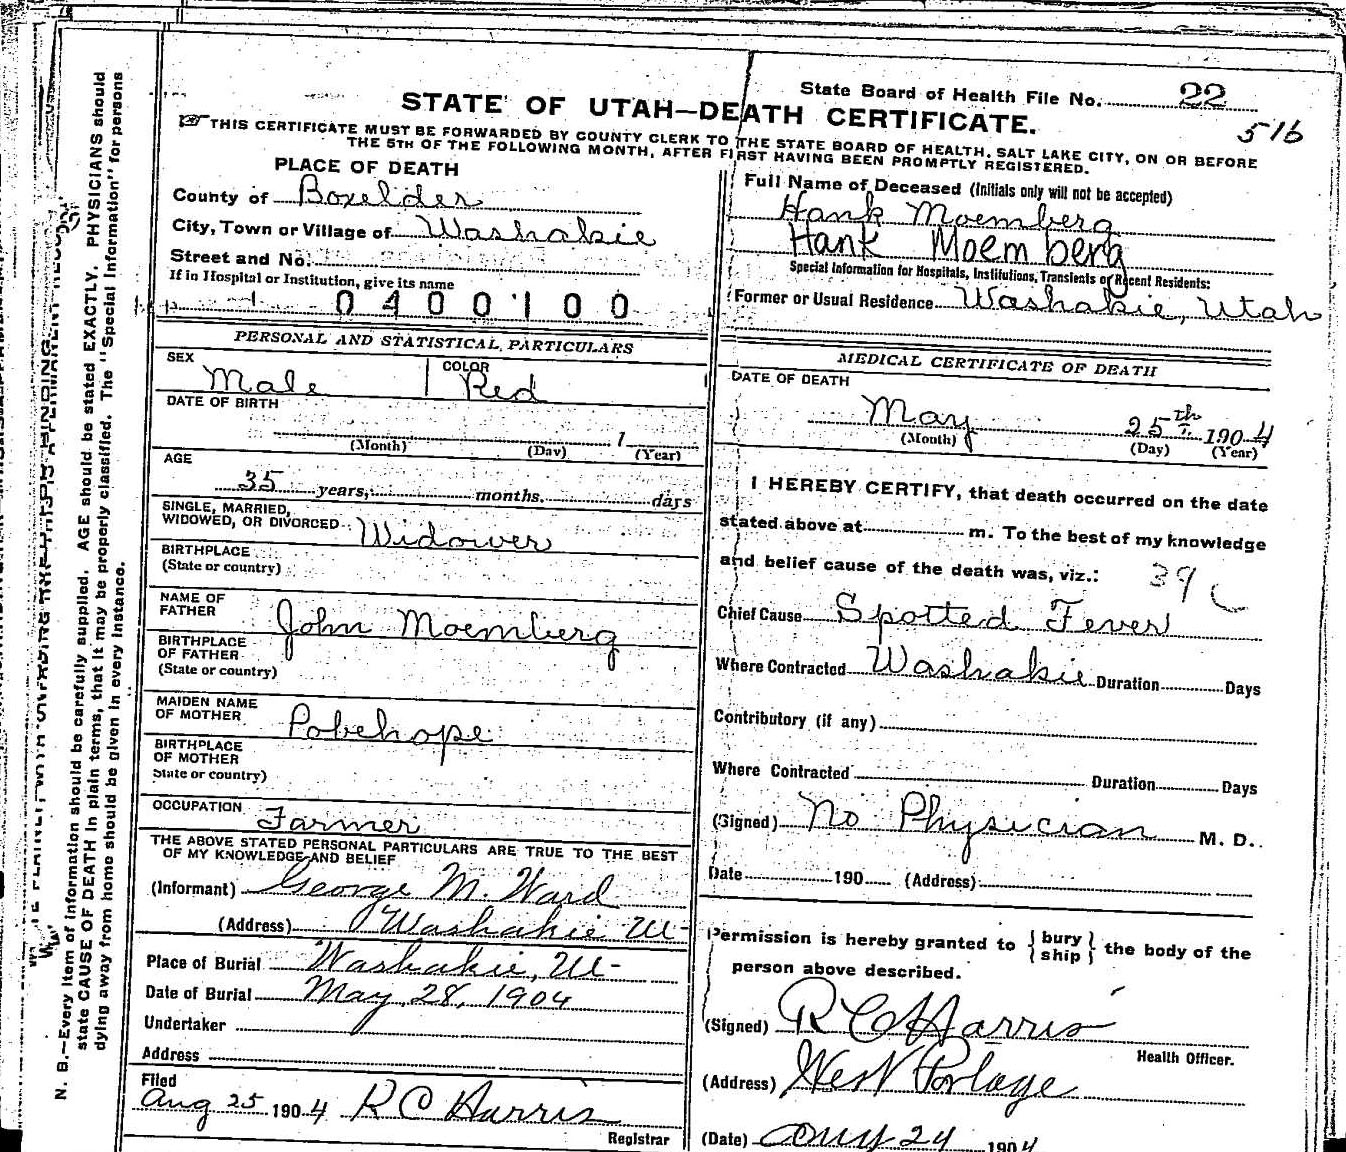 State Board of Health File No. 22
516
STATE OF UTAH—DEATH CERTIFICATE.
THIS CERTIFICATE MUST BE FORWARDED BY COUNTY CLERK TO THE STATE BOARD OF HEALTH, SALT LAKE CITY, ON OR BEFORE
THE 5TH OF THE FOLLOWING MONTH, AFTER FIRST HAVING BEEN PROMPTLY REGISTERED.
PLACE OF DEATH
County of Boxelder
City, Town or Village of Washakie
Street and No.
If in Hospital or Institution, give its name
0400100
PERSONAL AND STATISTICAL PARTICULARS
SEX Male COLOR Red
DATE OF BIRTH
1
(Month) (Day) (Year)
AGE
35 years, months, days
SINGLE, MARRIED,
WIDOWED, OR DIVORCED Widower
BIRTHPLACE
(State or country)
NAME OF
FATHER John Moemberg
BIRTHPLACE
OF FATHER
(State or country)
MAIDEN NAME
OF MOTHER Pobehope
BIRTHPLACE
OF MOTHER
State or country)
OCCUPATION Farmer
THE ABOVE STATED PERSONAL PARTICULARS ARE TRUE TO THE BEST
OF MY KNOWLEDGE AND BELIEF
(Informant) George M. Ward
(Address) Washakie Ut-
Place of Burial Washakie, Ut-
Date of Burial May 28, 1904
Undertaker
Address
Filed
Aug 25 1904 R C Harris
Registrar
Full Name of Deceased (Initials only will not be accepted)
Hank Moemberg
Hank Moemberg
Special Information for Hospitals, Institutions, Transients or Recent Residents:
Former or Usual Residence Washakie, Utah
MEDICAL CERTIFICATE OF DEATH
DATE OF DEATH
May 25th 1904
(Month) (Day) (Year)
I HEREBY CERTIFY, that death occurred on the date
stated above at m. To the best of my knowledge
and belief cause of the death was, viz.: 39
Chief Cause Spotted Fever
Where Contracted Washakie Duration Days
Contributory (if any)
Where Contracted Duration Days
(Signed) No Physician M. D.
Date 190 (Address)
Permission is hereby granted to {bury
ship} the body of the
person above described.
(Signed) R C Harris
Health Officer.
(Address) West Portage
(Date) Aug 24 1904
N. B.—Every item of information should be carefully supplied. AGE should be stated EXACTLY. PHYSICIANS should
state CAUSE OF DEATH in plain terms, that it may be properly classified. The "Special Information" for persons
dying away from home should be given in every instance.